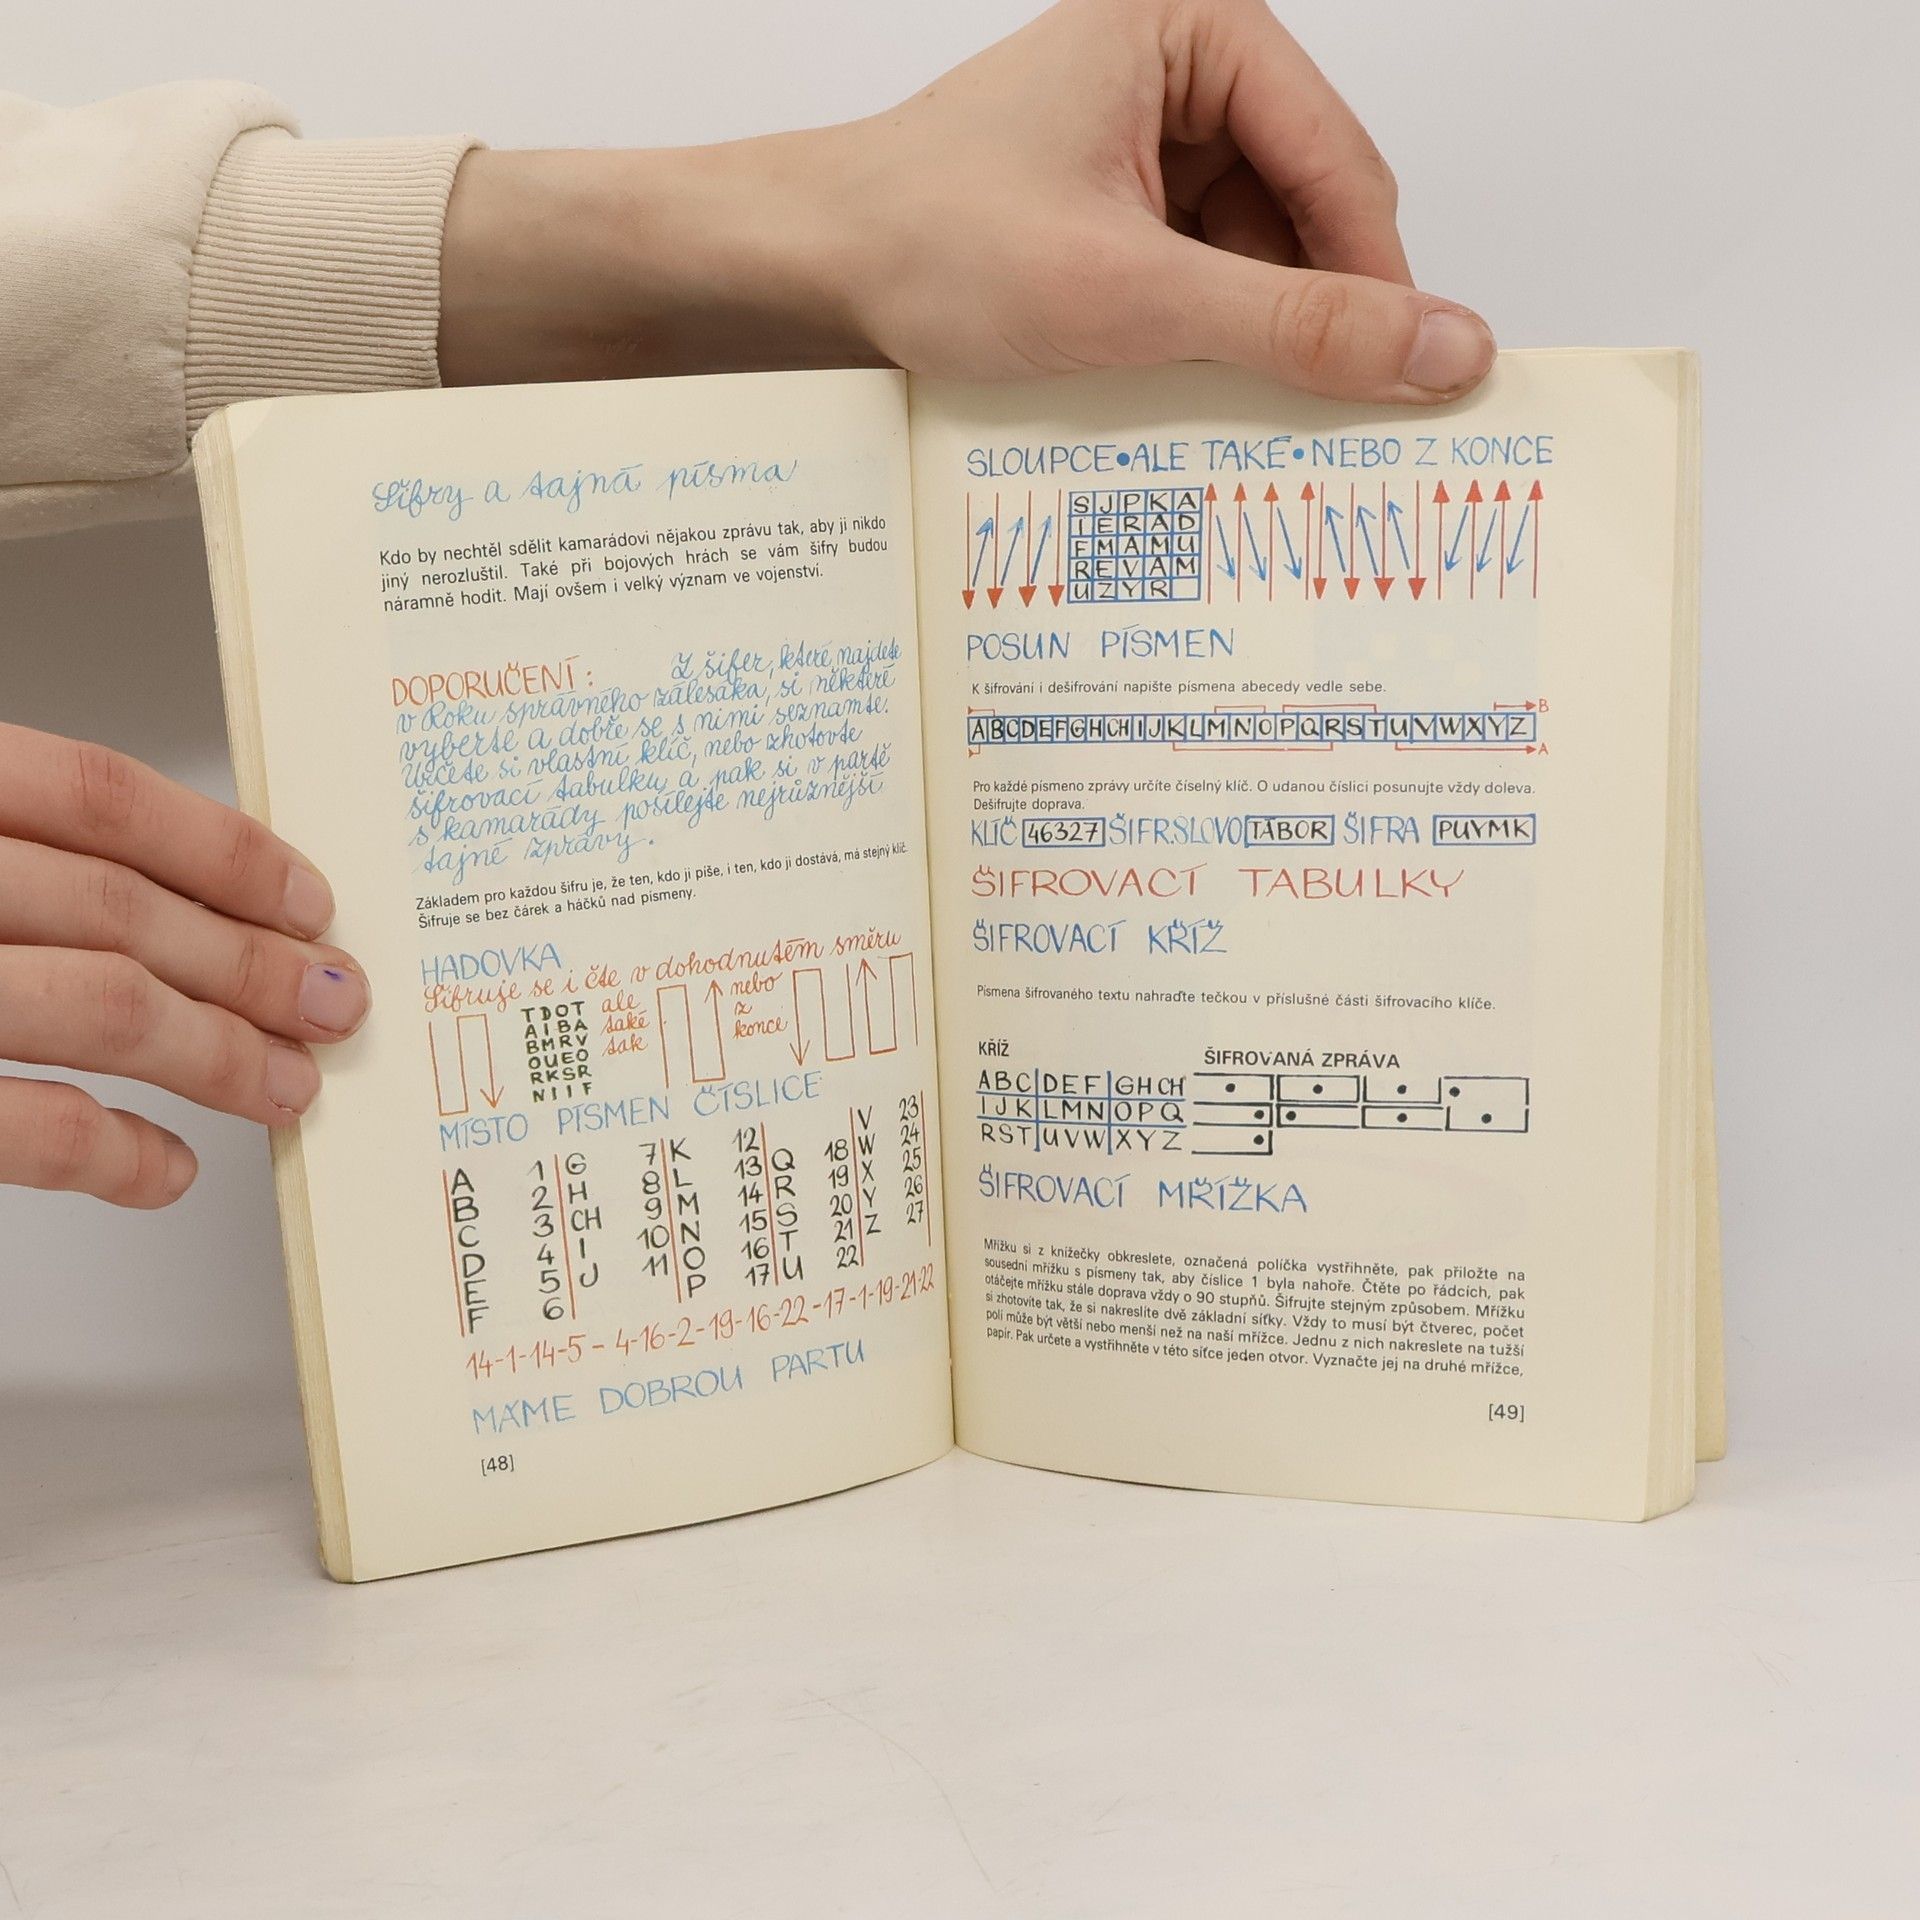 Šifry a tajná písma
Kdo by nechtěl sdělit kamarádovi nějakou zprávu tak, aby ji nikdo
jiný nerozluštil. Také při bojových hrách se vám šifry budou
náramně hodit. Mají ovšem i velký význam ve vojenství.
DOPORUČENÍ: Z šifer, které najdete
v Roku správného zálesáka, si některé
vyberte a dobře se s nimi seznamte.
Určete si vlastní klíč, nebo zhotovte
šifrovací tabulku a pak si v partě
s kamarády posílejte nejrůznější
tajné zprávy.
Základem pro každou šifru je, že ten, kdo ji píše, i ten, kdo ji dostává, má stejný klíč.
Šifruje se bez čárek a háčků nad písmeny.
HADOVKA
Šifruje se i čte v dohodnutém směru
TDOT
AIBA
BMRV
OUEO
RKSR
NIIF
ale
také
tak
nebo
z
konce
MÍSTO PÍSMEN ČÍSLICE
A 1
B 2
C 3
D 4
E 5
F 6
G 7
H 8
CH 9
I 10
J 11
K 12
L 13
M 14
N 15
O 16
P 17
Q 18
R 19
S 20
T 21
U 22
V 23
W 24
X 25
Y 26
Z 27
14-1-14-5 - 4-16-2-19-16-22-17-1-19-21-22
MÁME DOBROU PARTU
[48]
SLOUPCE•ALE TAKÉ•NEBO Z KONCE
SJPKA
IERAD
FMAMU
REVAM
UZYR
POSUN PÍSMEN
K šifrování i dešifrování napište písmena abecedy vedle sebe.
B
A B C D E F G H CH I J K L M N O P Q R S T U V W X Y Z
A
Pro každé písmeno zprávy určíte číselný klíč. O udanou číslici posunujte vždy doleva.
Dešifrujte doprava.
KLÍČ 46327 ŠIFR.SLOVO TÁBOR ŠIFRA PUYMK
ŠIFROVACÍ TABULKY
ŠIFROVACÍ KŘÍŽ
Písmena šifrovaného textu nahraďte tečkou v příslušné části šifrovacího klíče.
KŘÍŽ
ŠIFROVANÁ ZPRÁVA
ABC DEF GHCH
IJK LMN OPQ
RST UVW XYZ
ŠIFROVACÍ MŘÍŽKA
Mřížku si z knížečky obkreslete, označená políčka vystřihněte, pak přiložte na
sousední mřížku s písmeny tak, aby číslice 1 byla nahoře. Čtěte po řádcích, pak
otáčejte mřížku stále doprava vždy o 90 stupňů. Šifrujte stejným způsobem. Mřížku
si zhotovíte tak, že si nakreslíte dvě základní síťky. Vždy to musí být čtverec, počet
polí může být větší nebo menší než na naší mřížce. Jednu z nich nakreslete na tužší
papír. Pak určete a vystřihněte v této síťce jeden otvor. Vyznačte jej na druhé mřížce,
[49]